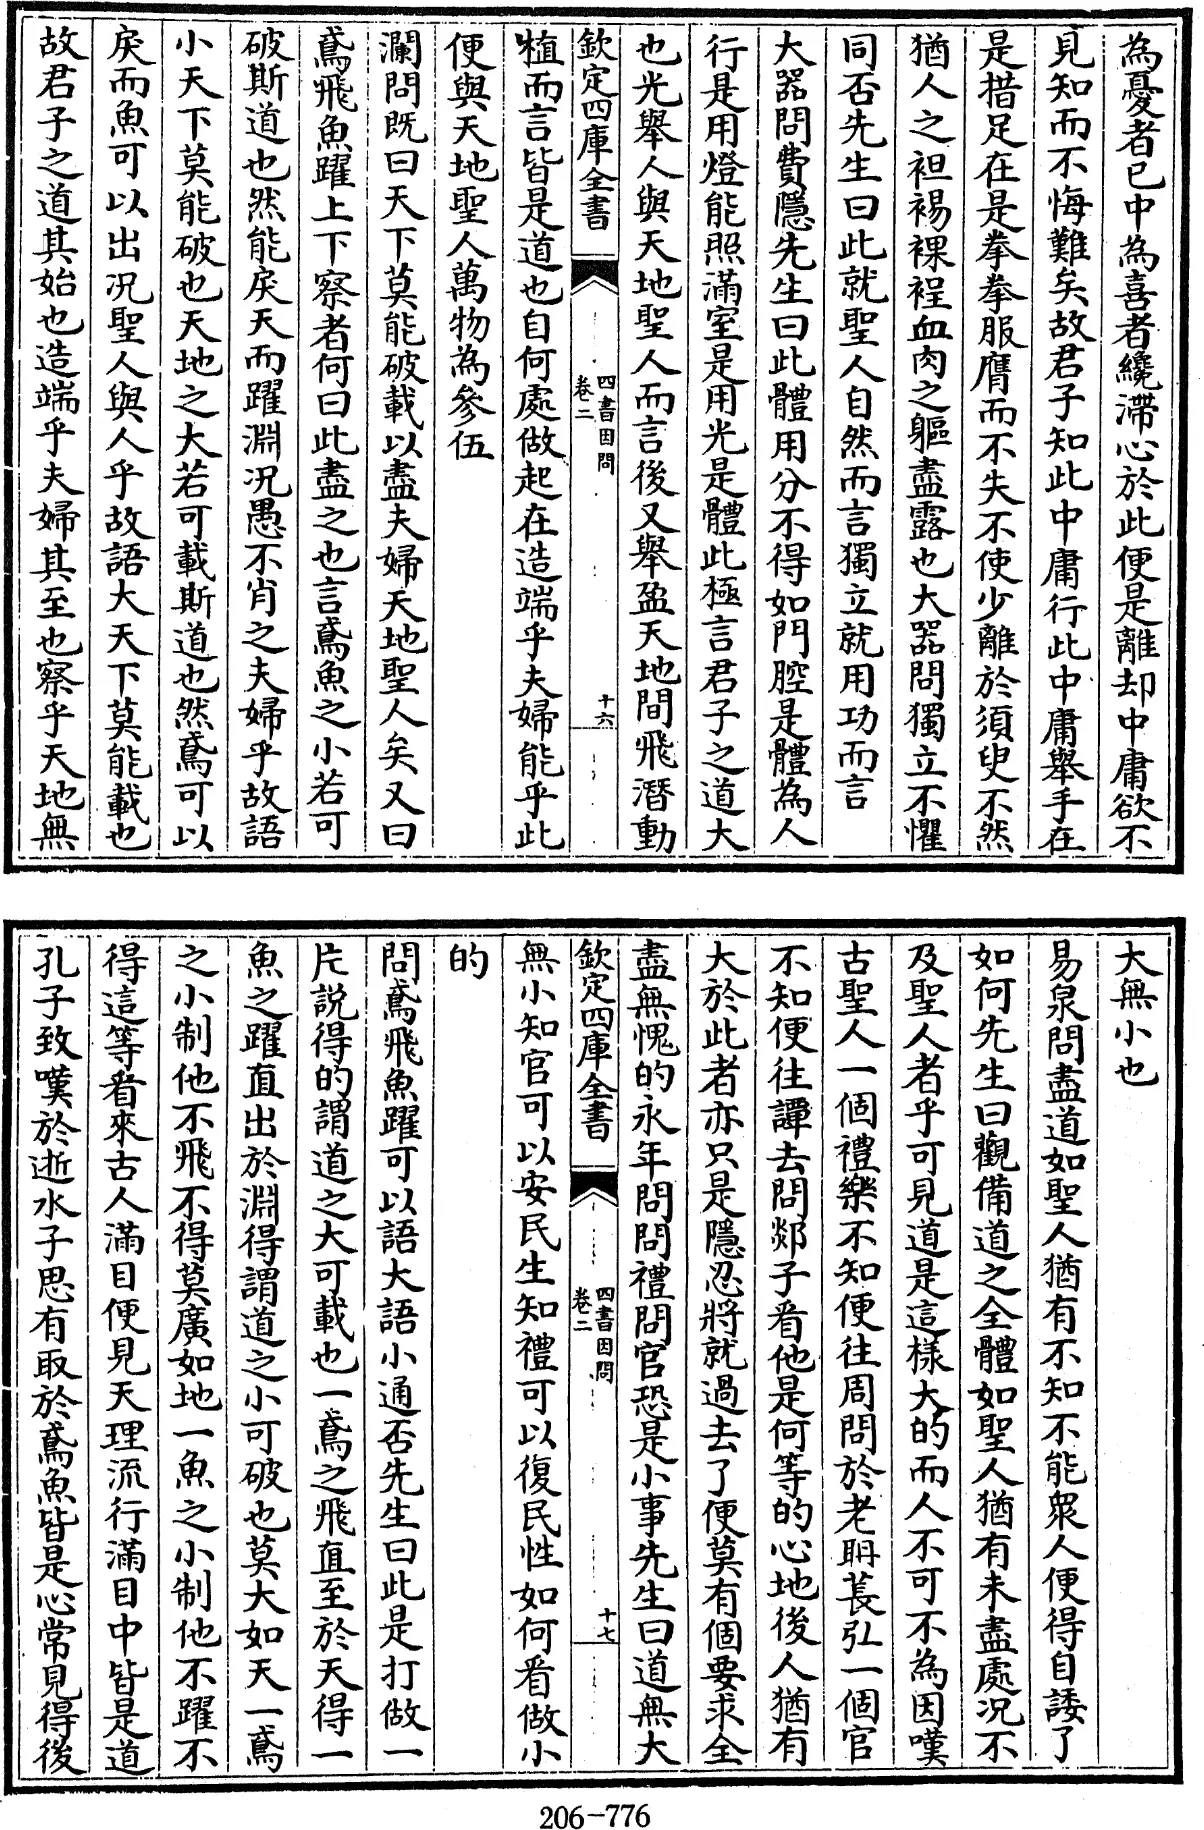 為憂者已中為喜者纔滯心於此便是離却中庸欲不
見知而不悔難矣故君子知此中庸行此中庸舉手在
是措足在是拳拳服膺而不失不使少離於須臾不然
猶人之袒裼裸裎血肉之軀盡露也大器問獨立不懼
同否先生曰此就聖人自然而言獨立就用功而言
大器問費隱先生曰此體用分不得如門腔是體為人
行是用燈能照滿室是用光是體此極言君子之道大
也光舉人與天地聖人而言後又舉盈天地間飛潛動
欽定四庫全書
四書因問
卷二
十六
植而言皆是道也自何處做起在造端乎夫婦能乎此
便與天地聖人萬物為參伍
瀾問既曰天下莫能破載以盡夫婦天地聖人矣又曰
鳶飛魚躍上下察者何曰此盡之也言鳶魚之小若可
破斯道也然能戾天而躍淵況愚不肖之夫婦乎故語
小天下莫能破也天地之大若可載斯道也然鳶可以
戾而魚可以出況聖人與人乎故語大天下莫能載也
故君子之道其始也造端乎夫婦其至也察乎天地無
大無小也
易泉問盡道如聖人猶有不知不能衆人便得自諉了
如何先生曰觀備道之全體如聖人猶有未盡處況不
及聖人者乎可見道是這樣大的而人不可不為因嘆
古聖人一個禮樂不知便往周問於老聃萇弘一個官
不知便往譚去問郯子看他是何等的心地後人猶有
大於此者亦只是隱忍將就過去了便莫有個要求全
盡無愧的永年問問禮問官恐是小事先生曰道無大
欽定四庫全書
四書因問
卷二
十七
無小知官可以安民生知禮可以復民性如何看做小
的
問鳶飛魚躍可以語大語小通否先生曰此是打做一
片說得的謂道之大可載也一鳶之飛直至於天得一
魚之躍直出於淵得謂道之小可破也莫大如天一鳶
之小制他不飛不得莫廣如地一魚之小制他不躍不
得這等看來古人滿目便見天理流行滿目中皆是道
孔子致嘆於逝水子思有取於鳶魚皆是心常見得後
206-776